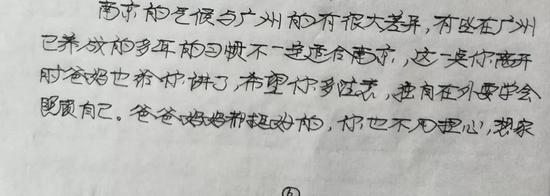 南京的气候与广州的有很大差异，有些在广州
已养成的多年的习惯不一定适合南京，这一点你离开
时爸妈也给你讲了，希望你多注意，独自在外要学会
照顾自己。爸爸妈妈都挺好的，你也不用担心，想家
6